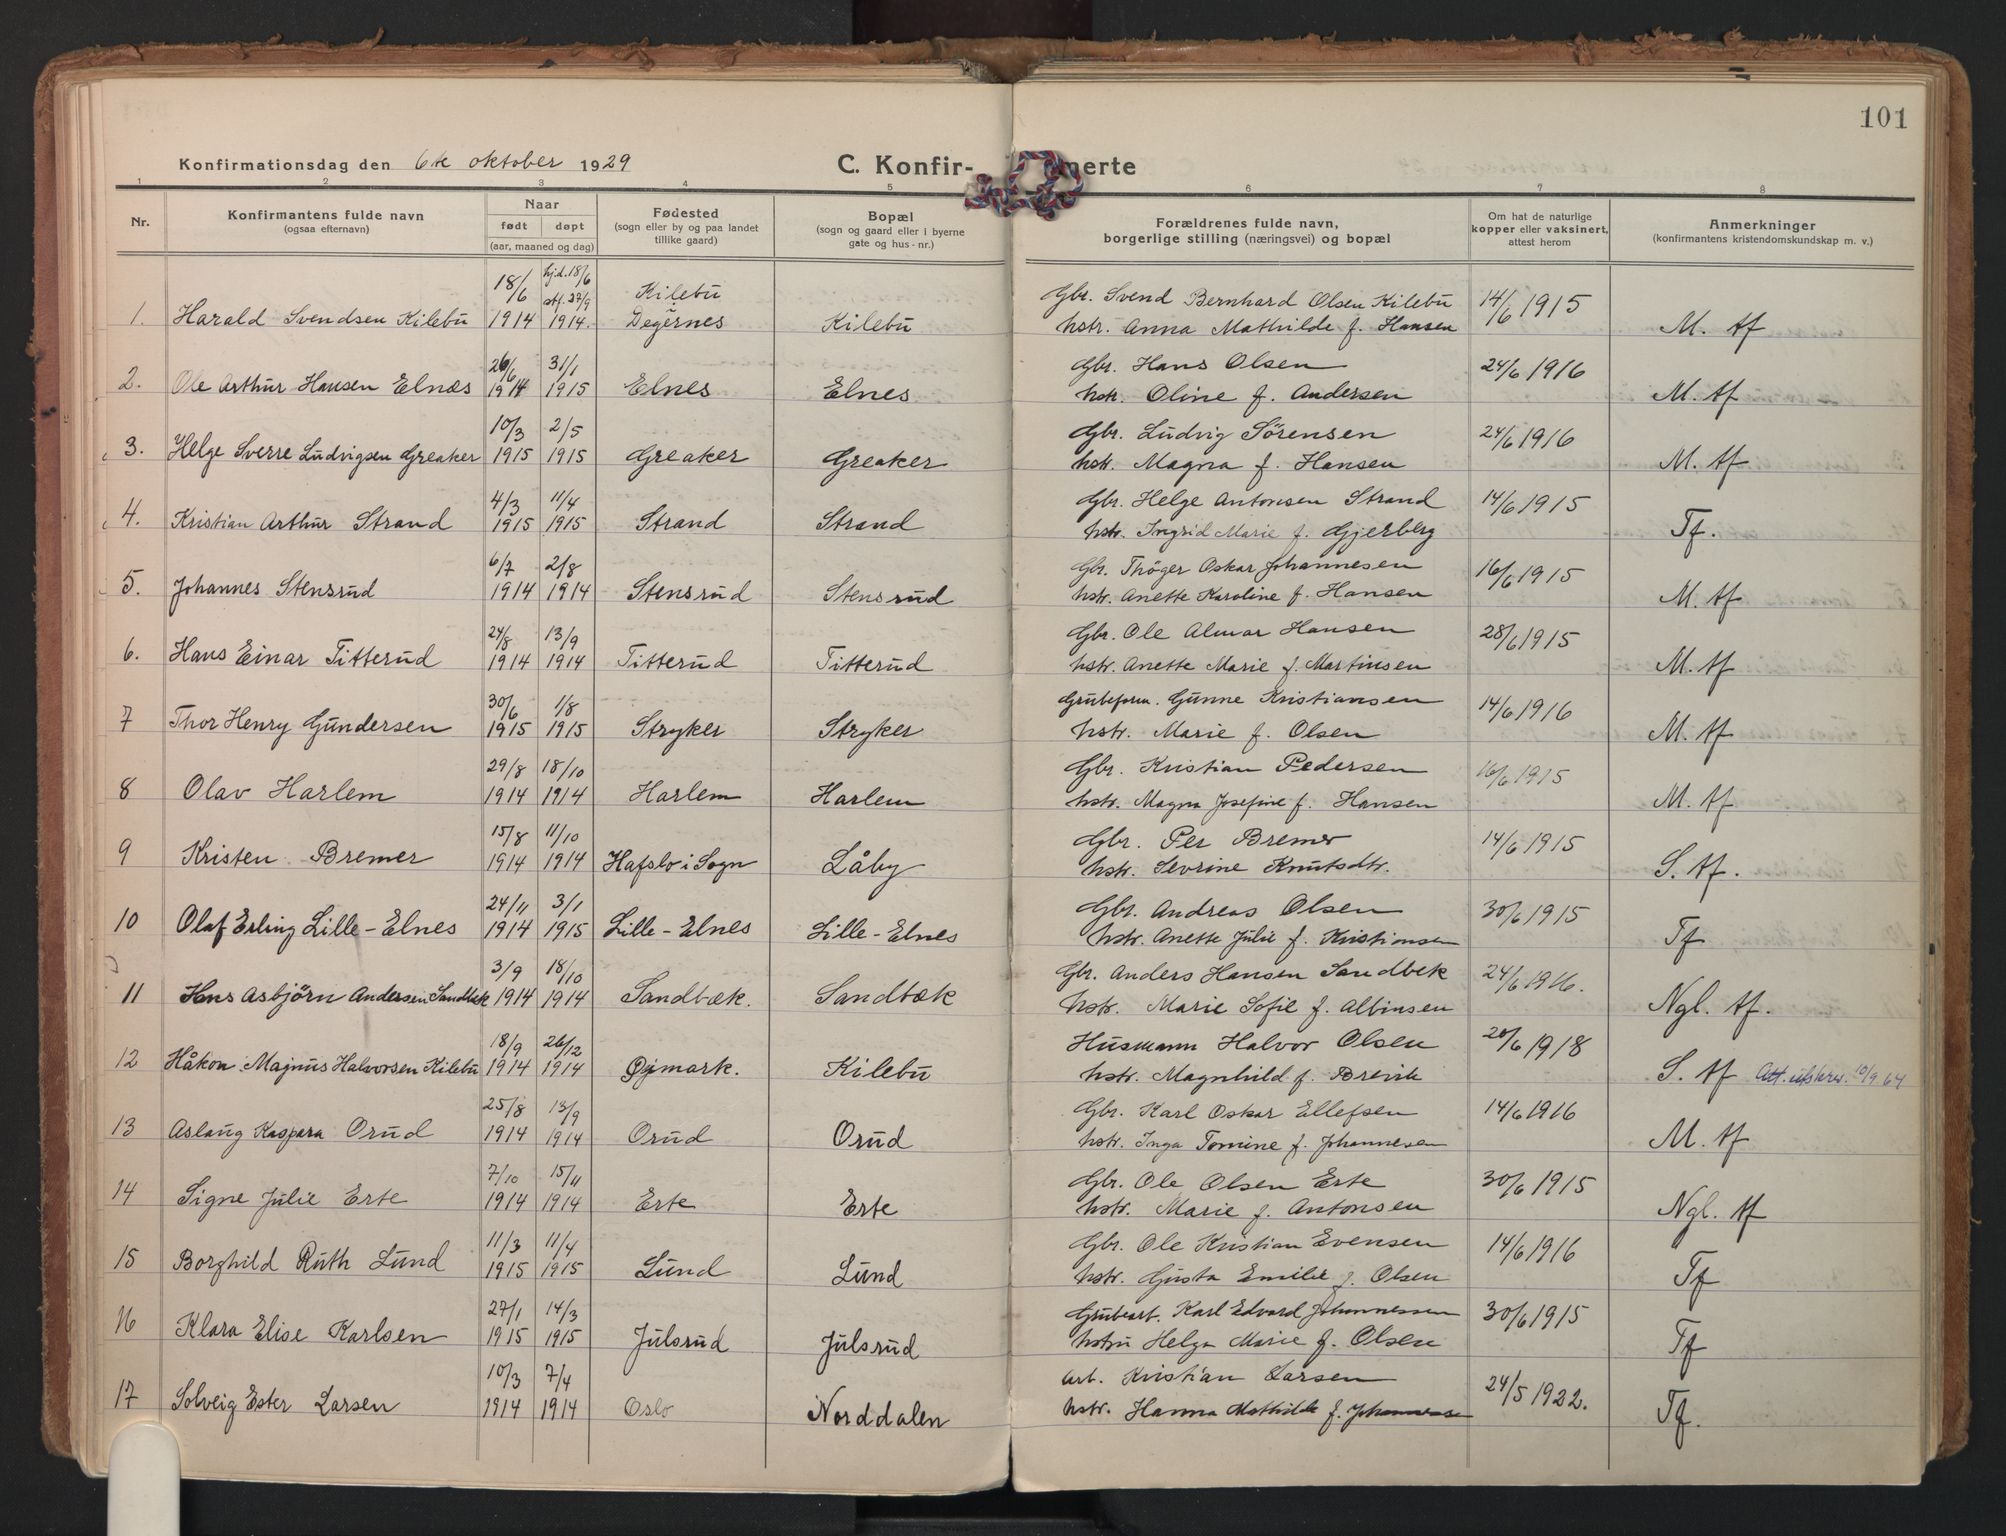 101
Konfirmationsdag den 6te oktober 1929
C. Konfir- merte
1 2 3 4 5 6 7 8
Nr.
Konfirmantens fulde navn
(ogsaa efternavn)
Naar
født døpt
(aar, maaned og dag)
Fødested
(sogn eller by og paa landet
tillike gaard)
Bopæl
(sogn og gaard eller i byerne
gate og hus-nr.)
Forældrenes fulde navn,
borgerlige stilling (næringsvei) og bopæl
Om hat de naturlige
kopper eller vaksinert,
attest herom
Anmerkninger
(konfirmantens kristendomskundskap m. v.)
18/6 hj.d. 18/6 Kilebu Gbr. Svend Bernhard Olsen Kilebu 14/6 1915
stf. 27/9
1. Harald Svendsen Kilebu 1914 1914. Degernes Kilebu hstr. Anna Mathilde f. Hansen M. tf
26/6 31/1 Gbr. Hans Olsen 24/6 1916
2. Ole Arthur Hansen Elnæs 1914 1915 Elnes Elnes hstr. Oline f. Andersen M. tf
10/3 2/5 Gbr. Ludvig Sørensen 24/6 1916
3. Helge Sverre Ludvigsen Greaker 1915 1915 Greaker Greaker hstr. Magna f. Hansen M. tf
4/3 11/4 Gbr. Helge Antonsen Strand 14/6 1915
4. Kristian Arthur Strand 1915 1915 Strand Strand hstr. Ingrid Marie f. Gjerberg Tf.
6/7 2/8 Gbr. Thöger Oskar Johannesen 16/6 1915
5. Johannes Stensrud 1914 1914 Stensrud Stensrud hstr. Anette Karoline f. Hansen M. tf
24/8 13/9 Gbr. Ole Almar Hansen 28/6 1915
6. Hans Einar Titterud 1914 1914 Titterud Titterud hstr. Anette Marie f. Martinsen M. tf
30/6 1/8 Grubeform. Gunne Kristiansen 14/6 1916
7 Thor Henry Gundersen 1915 1915 Stryker Stryker hstr. Marie f. Olsen M. tf
29/8 18/10 Gbr. Kristian Pedersen 16/6 1915
8 Olav Harlem 1914 1914 Harlem Harlem hstr. Magna Josefine f. Hansen M. tf
15/8 11/10 Gbr. Per Bremer 14/6 1915
9 Kristen Bremer 1914 1914 Hafslo i Sogn Låby hstr. Sevrine Knutsdtr. S. tf.
24/11 3/1 Gbr. Andreas Olsen 30/6 1915
10 Olaf Erling Lille-Elnes 1914 1915 Lille-Elnes Lille-Elnes hstr. Anette Julie f. Kristiansen Tf
3/9 18/10 Gbr. Anders Hansen Sandbek 24/6 1916.
11 Hans Asbjörn Andersen Sandbæk 1914 1914 Sandbæk. Sandbæk hstr. Marie Sofie f. Albinsen Ngl. tf.
18/9 26/12 Husmann Halvor Olsen 20/6 1918
12 Håkon Magnus Halvorsen Kilebu 1914 1914 Øymark. Kilebu hstr. Magnhild f. Brevik S. tf Att. utskrev. 10/9 64
25/8 13/9 Gbr. Karl Oskar Ellefsen 14/6 1916
13 Aslaug Kaspara Orud 1914 1914 Orud Orud hstr. Inga Tomine f. Johannesen M. tf
7/10 15/11 Gbr. Ole Olsen Erte 30/6 1915
14 Signe Julie Erte 1914 1914 Erte Erte hstr. Marie f. Antonsen Ngl. tf
11/3 11/4 Gbr. Ole Kristian Evensen 14/6 1916
15 Borghild Ruth Lund 1915 1915 Lund Lund hstr. Gusta Emilie f. Olsen Tf
27/1 14/3 Grubearb. Karl Edvard Johannessen 30/6 1915
16 Klara Elise Karlsen 1915 1915 Julsrud Julsrud hstru Helga Marie f. Olsen Tf
10/3 7/4 Arb. Kristian Larsen 24/5 1922.
17 Solveig Ester Larsen 1914 1914 Oslo Norddalen hstr. Hanna Mathilde f. Johannesen Tf.